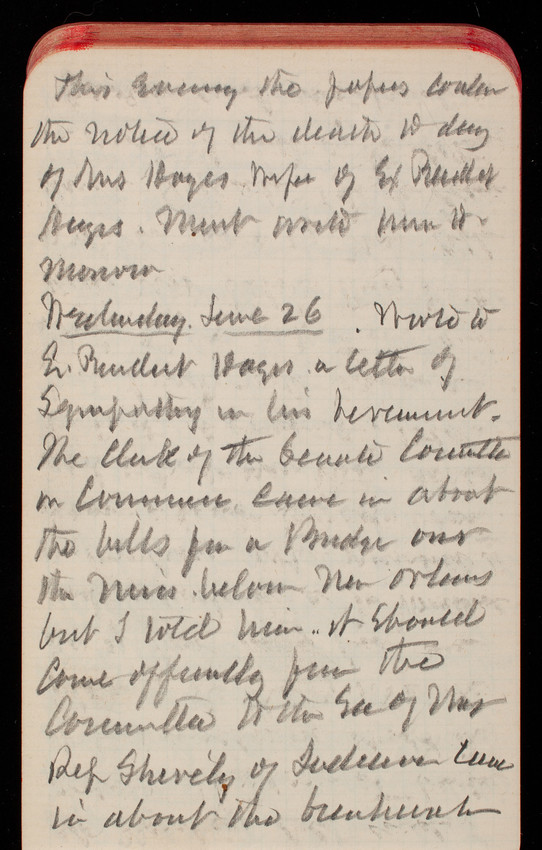 This evening the papers contain
the notice of the death to day
of Mrs Hayes wife of Ex President
Hayes. Must write him to
morrow
Wednesday, June 26. Wrote to
Ex. President Hayes a letter of
Sympathy in his bereavement.
The Clerk of the Senate Committee
on Commerce came in about
the bills for a Bridge over
the River below New Orleans
but I told him it should
come officially from the
Committee to the Sec of War
Rep Shively of Indiana came
in about the